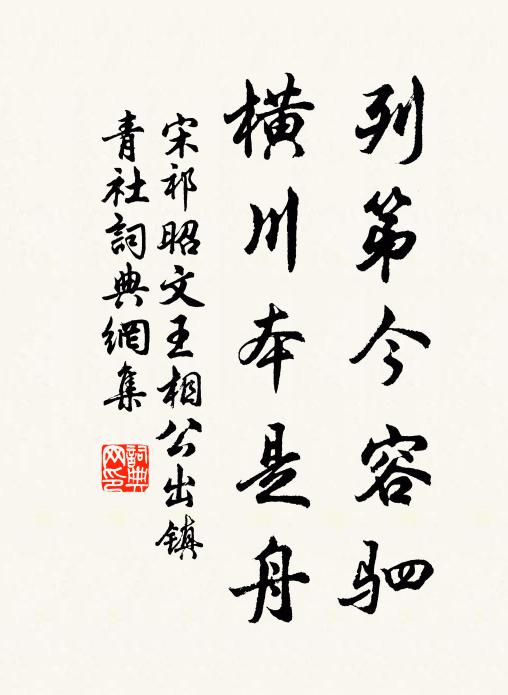 列第今容驷
横川本是舟
宋祁昭文王相公出镇
青社詞典網集
詞典网印